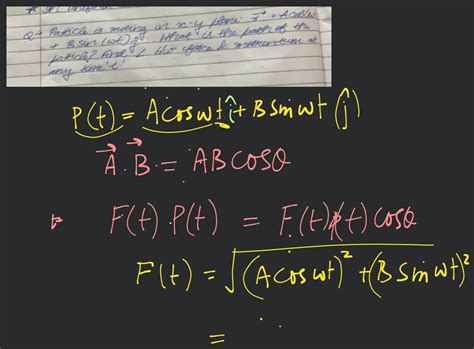 Q→ Particle is moving in x-y plane
+ B sin (ωt) ĵ. What is the path of the
particle? Find ∠ b/w force & momentum at
any time 't'
P(t) = A cos ωt î + B sin ωt (ĵ)
A⃗ . B⃗ = AB cos θ
F(t) . P(t) = F(t) p(t) cos θ
F(t) = √(A cos ωt)² + (B sin ωt)²
=